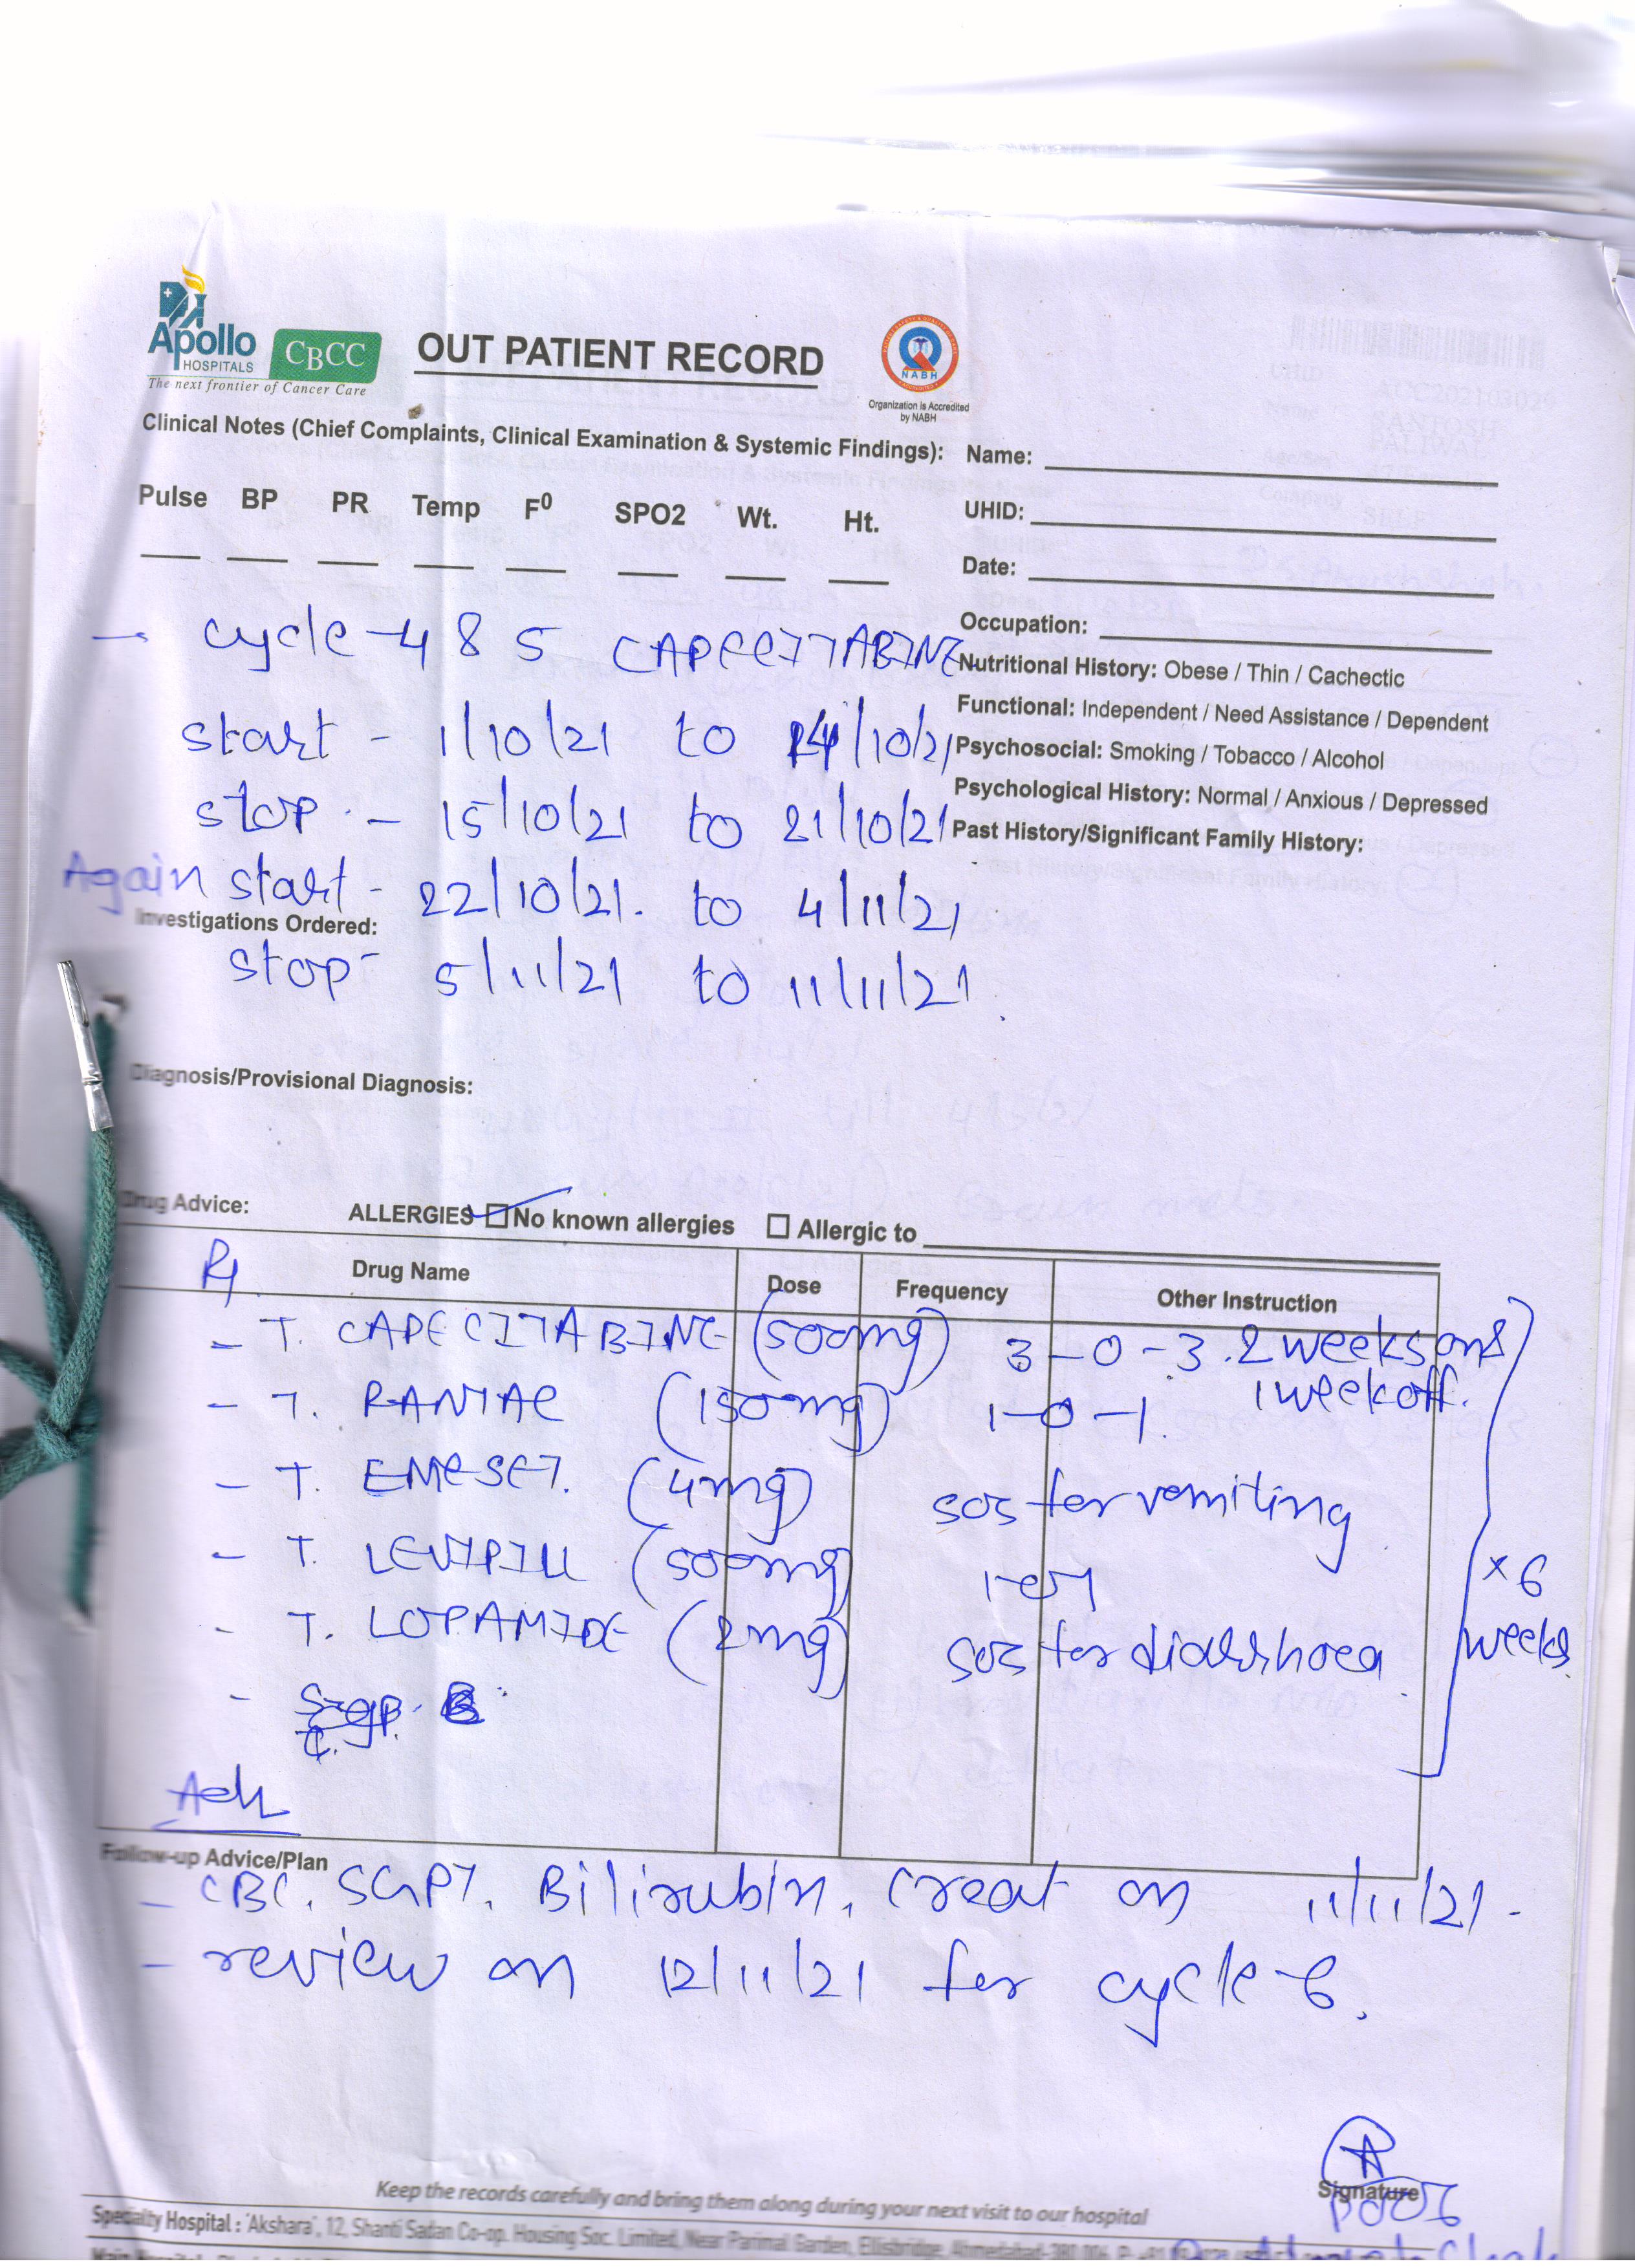 Apollo
HOSPITALS
CBCC
The next frontier of Cancer Care
OUT PATIENT RECORD
NABH
Organization is Accredited
by NABH
Clinical Notes (Chief Complaints, Clinical Examination & Systemic Findings):
Name:
Pulse BP PR Temp F⁰ SPO2 Wt. Ht.
UHID:
Date:
Occupation:
→ cycle-4 & 5 CAPECITABINE
Nutritional History: Obese / Thin / Cachectic
Functional: Independent / Need Assistance / Dependent
start - 1/10/21 to 14/10/21
Psychosocial: Smoking / Tobacco / Alcohol
Psychological History: Normal / Anxious / Depressed
stop - 15/10/21 to 21/10/21
Past History/Significant Family History:
Again start - 22/10/21. to 4/11/21
Investigations Ordered:
stop - 5/11/21 to 11/11/21.
Diagnosis/Provisional Diagnosis:
Drug Advice: ALLERGIES No known allergies Allergic to
Rx Drug Name Dose Frequency Other Instruction
- T. CAPECITABINE (500mg) 3-0-3. 2 weeks on &
1 week off.
- T. RANTAC (150mg) 1-0-1.
- T. EMESET. (4mg) sos for vomiting
- T. LEVIPILL (500mg)
x 6
weeks
- T. LOPAMIDE (2mg) sos for diarrhoea.
Adv
Follow-up Advice/Plan
- CBC, SGPT, Bilirubin, creat on 11/11/21.
- review on 12/11/21 for cycle-6.
Signature
Keep the records carefully and bring them along during your next visit to our hospital
Specialty Hospital : 'Akshara', 12, Shanti Sadan Co-op. Housing Soc. Limited, Near Parimal Garden, Ellisbridge, Ahmedabad-380 006.